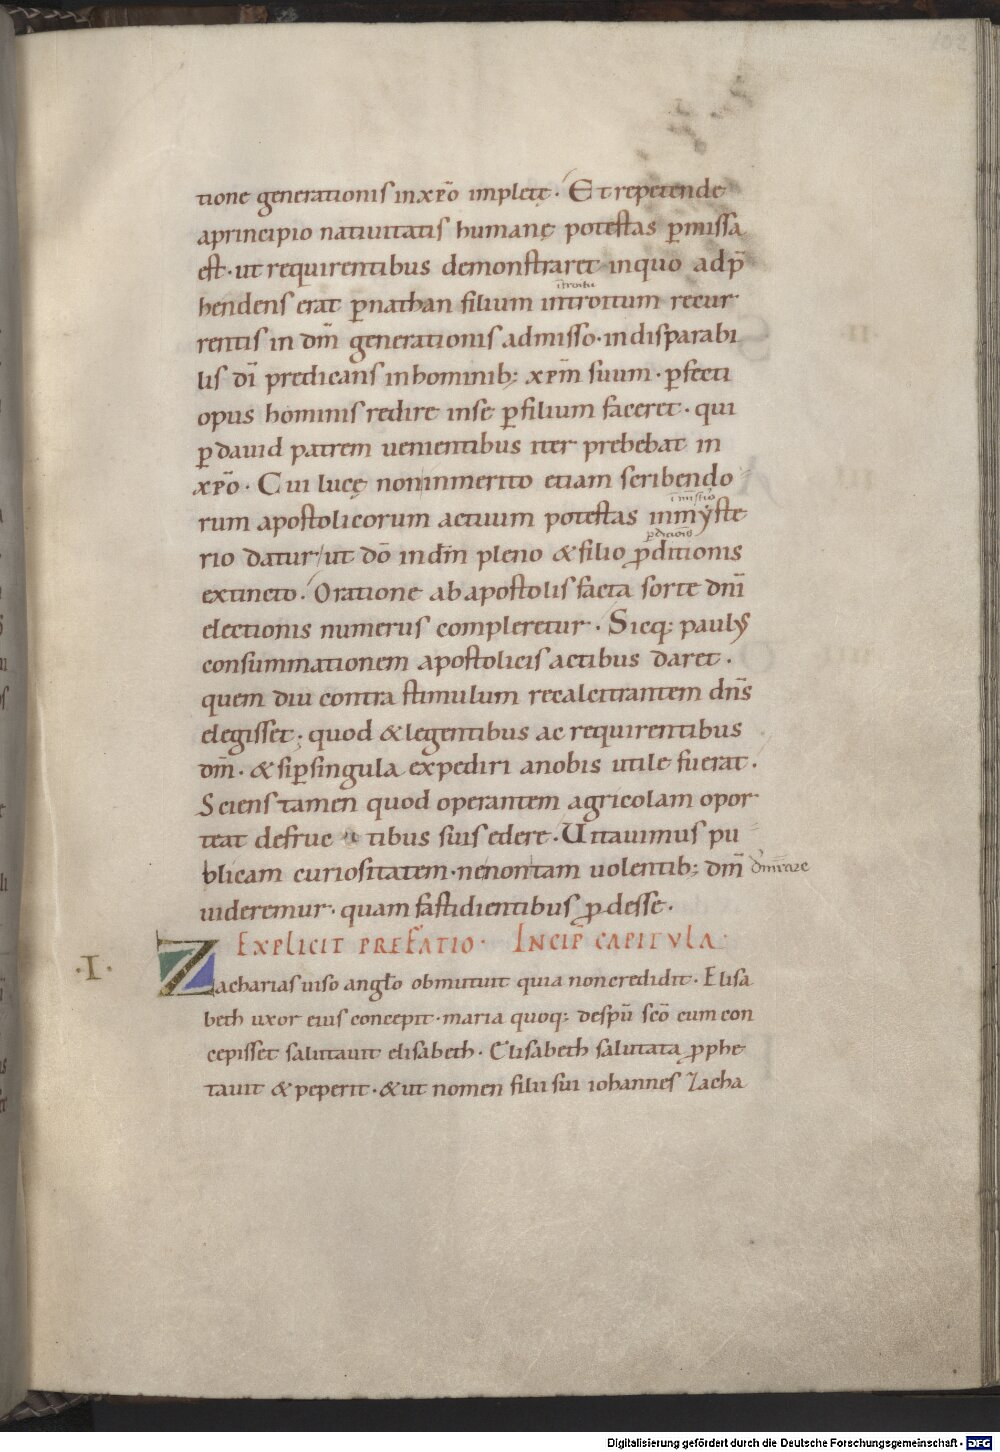 102
tione generationis in xp̄o impletę. Et repetende
a principio natiuitatis humanę potestas p̄missa
est. ut requirentibus demonstraret in quo adp̄
hendens erat p̄ nathan filium introitum recur
introitu
rentis in dm̄ generationis admisso. indisparabi
lis dī predicans in hominib; xp̄m suum. p̄fecti
opus hominis redire in se p̄ filium faceret. qui
p̄ dauid patrem uenientibus iter prebebat in
xp̄o. Cui lucę non inmerito etiam scribendo
rum apostolicorum actuum potestas in mẏste
rio datur ut dō in dm̄ pleno & filio p̄ditionis
extincto. Oratione ab apostolis facta sorte dnī
electionis numerus compleretur. Sicq; paulus
consummationem apostolicis actibus daret.
quem diu contra stimulum recalcitrantem dn̄s
elegisset. quod & legentibus ac requirentibus
dm̄. & si p̄ singula expediri a nobis utile fuerat.
Sciens tamen quod operantem agricolam opor
teat de fruc ti tibus suis edere. Uitauimus pu
blicam curiositatem. ne non tam uolentib; dm̄
uideremur. quam fastidientibus p̄desse.
Explicit prefatio. Incip̄ capitula.
.I. Zacharias uiso anglo obmutuit quia non credidit. Elisa
beth uxor eius concepit. maria quoq; de sp̄u sc̄o cum con
cepisset salutauit elisabeth. Elisabeth salutata p̄phe
tauit & peperit. & ut nomen filii sui iohannes Zacha
Digitalisierung gefördert durch die Deutsche Forschungsgemeinschaft - DFG